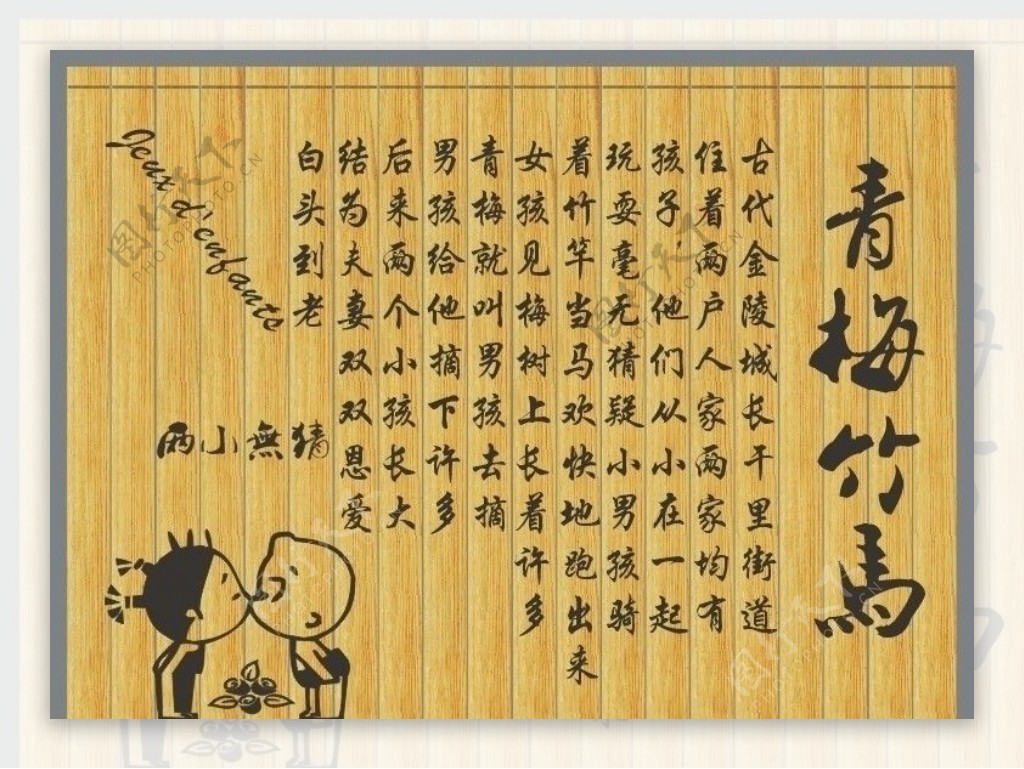 青梅竹馬
古代金陵城长干里街道
住着两户人家两家均有
孩子他们从小在一起
玩耍毫无猜疑小男孩骑
着竹竿当马欢快地跑出来
女孩见梅树上长着许多
青梅就叫男孩去摘
男孩给他摘下许多
后来两个小孩长大
结为夫妻双双恩爱
白头到老
Jeux d'enfants
两小無猜